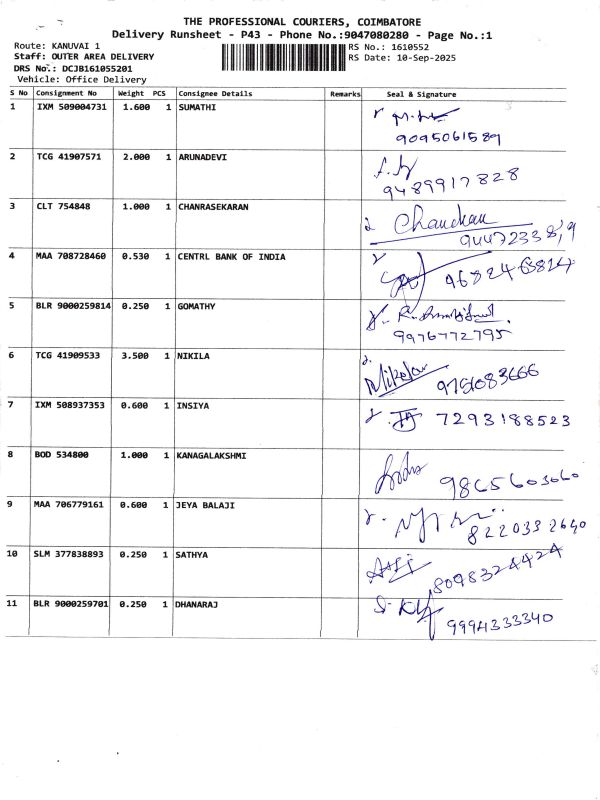 THE PROFESSIONAL COURIERS, COIMBATORE
Delivery Runsheet - P43 - Phone No.:9047080280 - Page No.:1
Route: KANUVAI 1
RS No.: 1610552
Staff: OUTER AREA DELIVERY
RS Date: 10-Sep-2025
DRS No.: DCJB161055201
Vehicle: Office Delivery
S No Consignment No Weight PCS Consignee Details Remarks Seal & Signature
1 IXM 509004731 1.600 1 SUMATHI
9095061589
2 TCG 41907571 2.000 1 ARUNADEVI
9489917828
3 CLT 754848 1.000 1 CHANRASEKARAN
Chandran
4 MAA 708728460 0.530 1 CENTRL BANK OF INDIA
5 BLR 9000259814 0.250 1 GOMATHY
9976772795
6 TCG 41909533 3.500 1 NIKILA
9751083666
7 IXM 508937353 0.600 1 INSIYA
7293188523
8 BOD 534800 1.000 1 KANAGALAKSHMI
9865603060
9 MAA 706779161 0.600 1 JEYA BALAJI
8220332640
10 SLM 377838893 0.250 1 SATHYA
8098324424
11 BLR 9000259701 0.250 1 DHANARAJ
9994333340